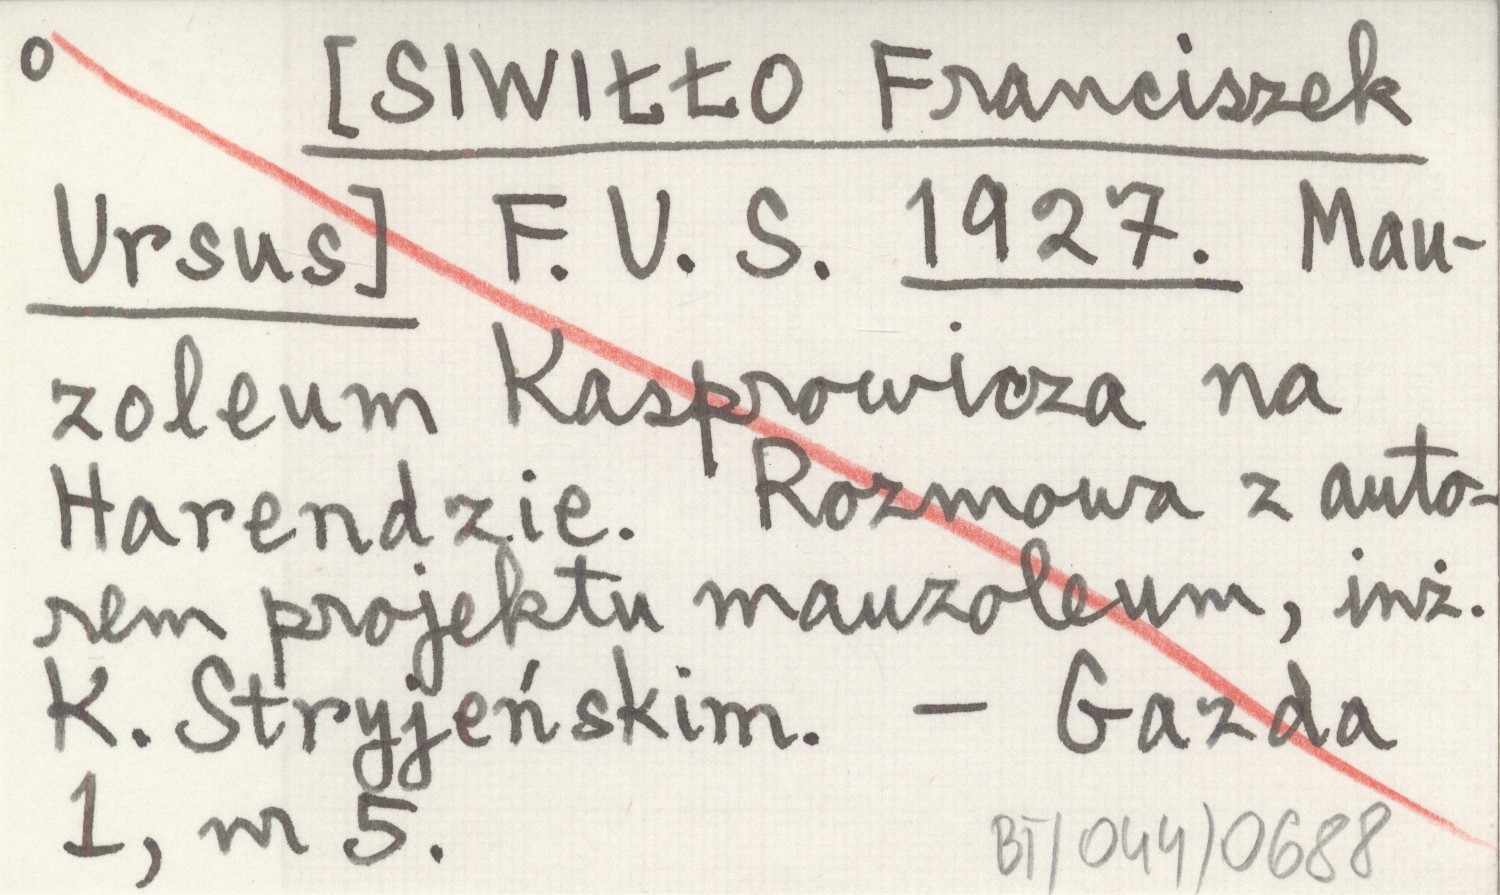 o [SIWIŁŁO Franciszek
Ursus] F. U. S. 1927. Mau-
zoleum Kasprowicza na
Harendzie. Rozmowa z auto-
rem projektu mauzoleum, inż.
K. Stryjeńskim. – Gazda
1, nr 5.
BT/044/0688